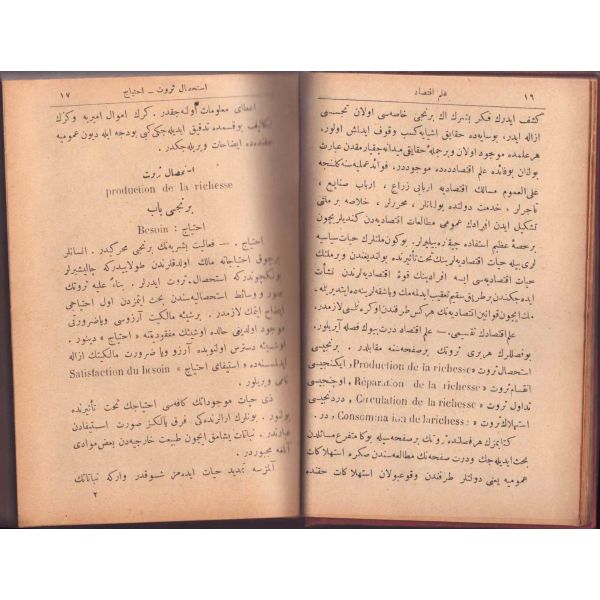 ١٦
علم اقتصاد
كشف ايدرك فكر بشرك اك برنجی خاصه‌سی اولان تجسسی
ازاله ايدر، بوسايه‌ده حقايق اشيايه كسب وقوف ايداش اولور.
هر علمده موجود اولان و برجمله حقايقی ميدانه چيقارمقدن عبارت
بولنان بوفائده علم اقتصادده‌ده موجوددر. فوائد عمليه‌سنه كلنجه
علی‌العموم مسالك اقتصاديه اربابی زراع ، ارباب صنايع ،
تاجرلر ، خدمت دولتده بولنانلر، محررلر ، خلاصه بر ملتی
تشكيل ايدن افرادك عمومی مطالعات اقتصاديه‌دن كنديلريچون
بر حصهٔ عظيم استفاده چيقره‌بيليرلر. بوكون ملتلرك حيات سياسيه
لری بيله حيات اقتصاديه‌لرينك تحت تأثيرنده بولنديغندن و بر ملتك
حيات اقتصاديه‌سی ايسه افرادينك قوهٔ اقتصاديه‌لرندن نشأت
ايده‌جكندن بر طريق سقيم تعقيب ايدلمه‌مك و ياشقه‌لرينه‌ده ايتديرلمه
مك ايچون قوانين اقتصاديه‌نك هر كس طرفندن اوكرنلمسی لازمدر.
علم اقتصادك تقسيمی. — علم اقتصاد درت بيوك فصله آيريلور.
بوفصللرك هر بری ثروتك بر صفحه‌سنه مقابلدر . برنجيسی
استحصال ثروت «Production de la richesse» ايكنجيسی
انقسام ثروت «Réparation de la richesse» اوچنجيسی
تداول ثروت «Circulation de la richesse» دردنجيسی
استهلاك ثروت «Consomation de la richesse» در .
كتابمزك هر فصلنده ثروتك بر صفحه‌سيله بوكا متفرع مسائلدن
بحث ايديله‌جك و درت صفحه‌نك مطالعه‌سندن صكره استهلاكات
عموميه يعنی دولتلر طرفندن وقوعبولان استهلاكات حقنده
استحصال ثروت — احتياج
١٧
اعطای معلومات اولنه‌جقدر. كرك اموال اميريه و كرك
تكاليف بوقسمده تدقيق ايديله‌جكی كبی بودجه ايله ديون عموميه
حقنده‌ده ايضاحات ويريله‌جكدر.
١- استحصال ثروت
production de la richesse
برنجی باب
احتياج : Besoin
احتياج . — فعاليت بشريه‌نك برنجی محركيدر. انسانلر
برچوق احتياجاته مالك اولدقلرندن طولاييدركه چاليشيرلر
بونكچوندركه استحصال ثروت ايدرلر . بناءً عليه ثروتك
صور و وسائط استحصاليه‌سندن بحث ايتمزدن اول احتياجی
ايضاح ايتمك لازمدر. برشيئه مالكيت آرزوسی وياضرورتی
موجود اولديغی حالده اوشيئك مفقوديتنه « احتياج » دينور .
اوشيئه دسترس اولنوبده آرزو ويا ضرورت مالكيتك ازاله
ايدلمسنه‌ده « استيفای احتياج » Satisfaction du besoin
نامی ويريلور .
ذی حيات موجوداتك كافه‌سی احتياجك تحت تأثيرنده
بولنور . بونلرك آرالرنده‌كی فرق يالكز صورت استيفادن
عبارتدر. نباتات يشامق ايچون طبيعت خارجيه‌دن بعض موادی
آلمغه مجبوردر .
آلمزسه تمديد حيات ايده‌مز شوقدر واركه نباتاتك
٢